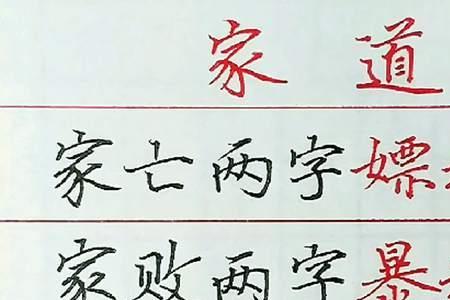 家道
家亡两字嫖
家败两字暴